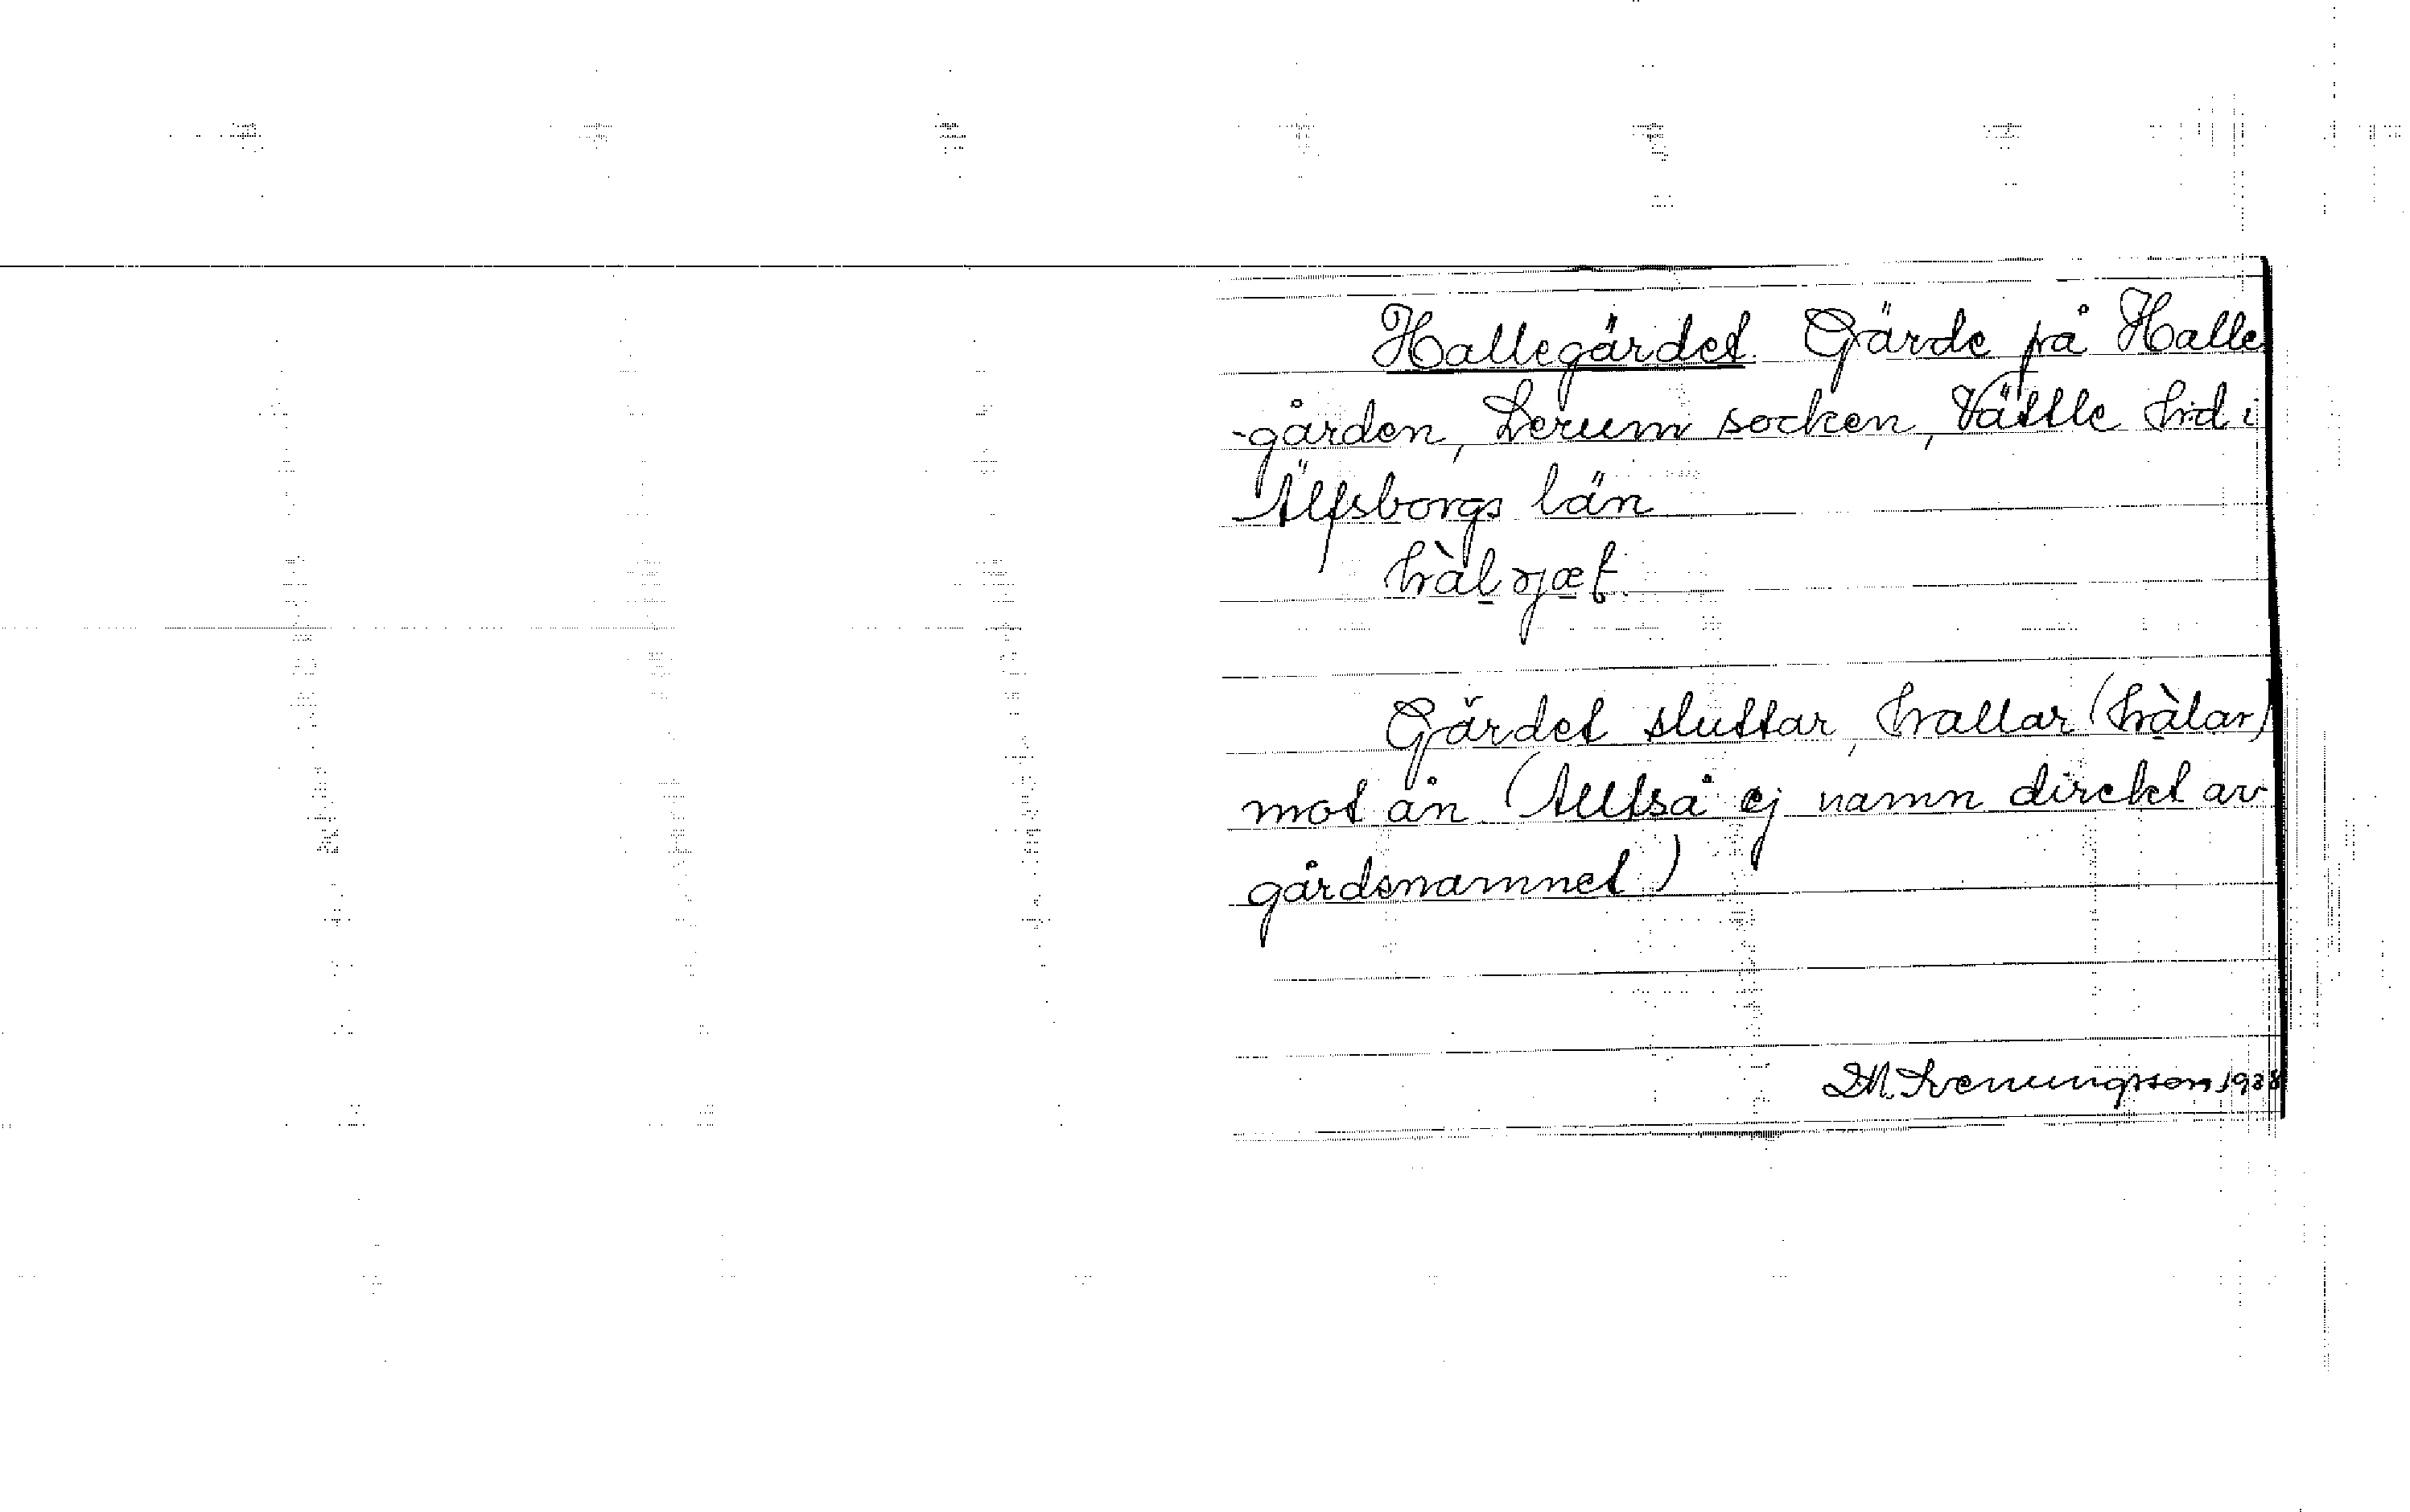 Hallegärdet. Gärde på Halle
-gården, Lerum socken, Vättle hd i
Älfsborgs län
hàl̠ɂjæt̠.
Gärdet sluttar, hallar (hàl̠ar)
mot ån (Alltså ej namn direkt av
gårdsnamnet)
D.M. Svenungsson 1928